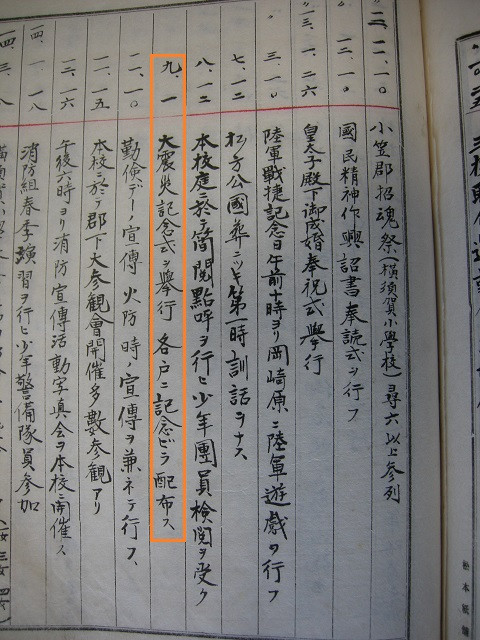 一二、一一、一〇 小笠郡招魂祭（横須賀小學校）尋六以上参列
一二、一〇 國民精神作興詔書奉読式ヲ行フ
一三、一、二六 皇太子殿下御成婚奉祝式擧行
三、一〇 陸軍戰捷記念日午前十時ヨリ岡崎原ニ陸軍遊戯ヲ行フ
七、一二 松方公國葬ニツキ第一時訓話ヲナス
八、一二 本校庭ニ於テ簡閲點呼ヲ行ヒ少年團員検閲ヲ受ク
九、一 大震災記念式ヲ擧行 各戸ニ記念ビラ配布ス
一一、一〇 勤儉デーノ宣傳 火防時ノ宣傳ヲ兼ネテ行フ、
一一、一五 本校ニ於テ郡下大参観會開催多數参観アリ
一二、一六 午後六時ヨリ消防宣傳活動寫眞会ヲ本校ニ開催ス
一四、一、一八 消防組春季演習ヲ行ヒ少年警備隊員参加
一四、三、八
松本紙舗